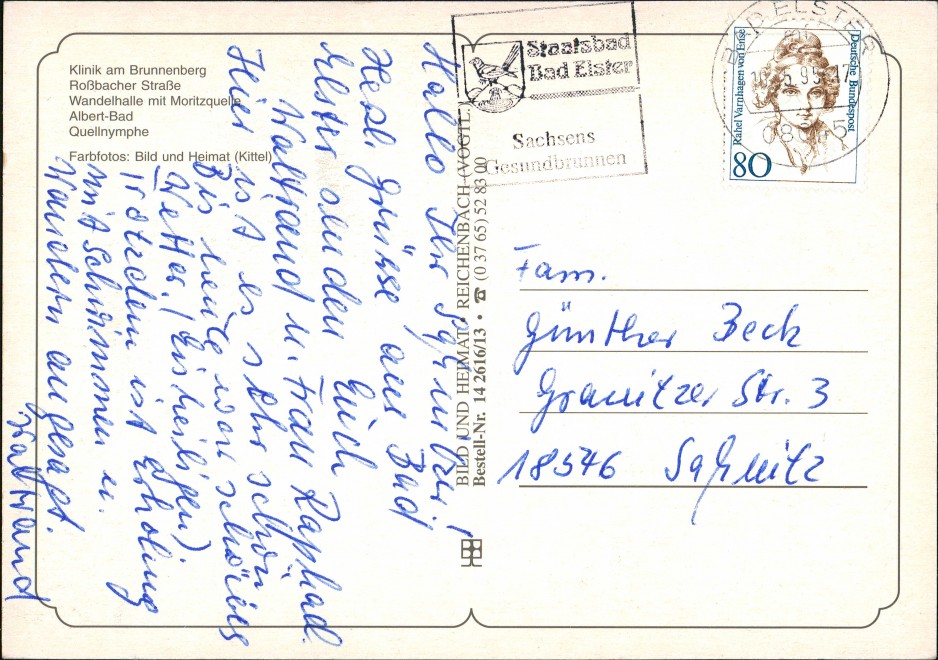 Klinik am Brunnenberg
Roßbacher Straße
Wandelhalle mit Moritzquelle
Albert-Bad
Quellnymphe
Farbfotos: Bild und Heimat (Kittel)
Hallo Ihr
Herzl. Grüsse aus Bad
Elster senden Euch
Waltraud u. Frau Raphael.
Hier ist es sehr schön
Bis heute war schönes
Wetter. (Eisheiligen)
Trotzdem ist Erholung
mit Schwimmen u.
Wandern angesagt.
Waltraud
BILD UND HEIMAT • REICHENBACH (VOGTL.)
Bestell-Nr. 14 2616/13 • ☎ (0 37 65) 52 83 00
Staatsbad
Bad Elster
Sachsens
Gesundbrunnen
BAD ELSTER
Rahel Varnhagen von Ense
Deutsche Bundespost
80
Fam.
Günther Beck
Granitzer Str. 3
18546 Saßnitz